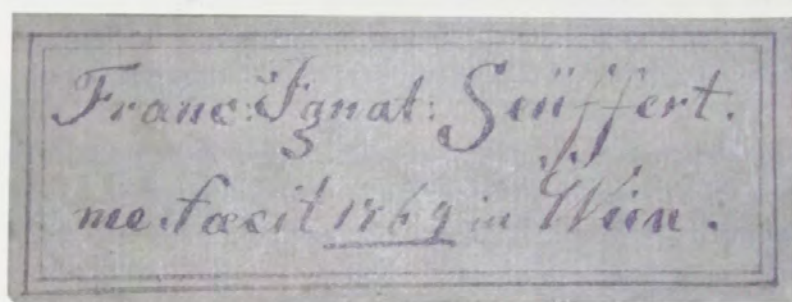 Franc: Ignat: Seüffert.
me. fecit 1769 in Wien.